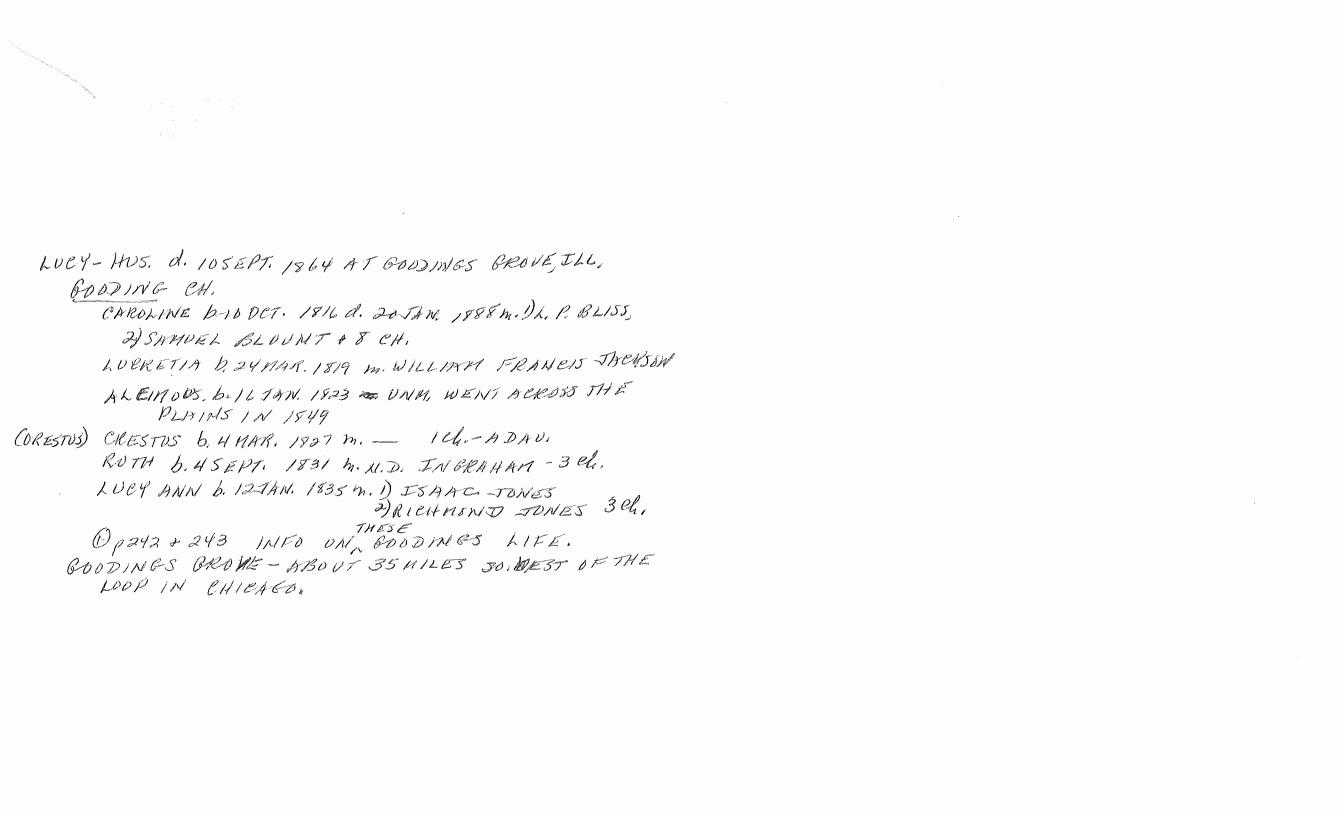 LUCY - HUS. d. 10 SEPT. 1864 AT GOODINGS GROVE, ILL.
GOODING CH.
CAROLINE b-10 OCT. 1816 d. 20 JAN. 1888 m. 1) L. P. BLISS,
2) SAMUEL BLOUNT + 8 CH.
LUCRETIA b. 24 MAR. 1819 m. WILLIAM FRANCIS JACKSON
b. 16 JAN. 1823 UNM. WENT ACROSS THE
PLAINS IN 1849
(ORESTUS) CRESTUS b. 4 MAR. 1827 m. — 1 Ch. - A DAU.
RUTH b. 4 SEPT. 1831 m. M.D. INGRAHAM - 3 ch.
LUCY ANN b. 12 JAN. 1835 m. 1) ISAAC JONES
2) RICHMOND JONES 3 Ch.
THESE
① p 242 + 243 INFO ON ^ GOODINGS LIFE.
GOODINGS GROVE - ABOUT 35 MILES SO. WEST OF THE
LOOP IN CHICAGO.